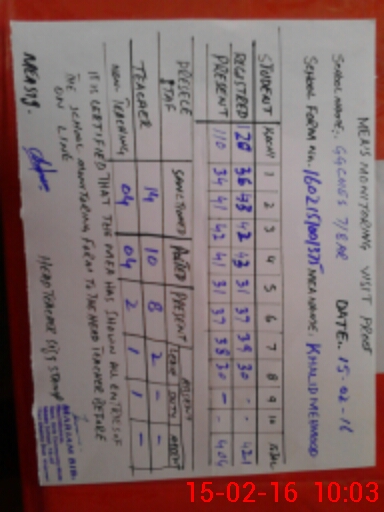 MEA'S MONITORING VISIT PROOF
SCHOOL NAME:. GGCMES 7/EAR DATE:. 15-02-16
SCHOOL FORM NO. MEA NAME: KHALID MEHMOOD
STUDENT KACHI 1 2 3 4 5 6 7 8 9 10 TOTAL
REGISTRED 120 36 43 42 43 31 37 39 30 - - 421
PRESENT 110 34 41 42 41 31 37 38 30 - - 404
PRESECE STAF SANCTIONED POSTED PRESENT LEAVE DUTY ABSENT
TEACHER 14 10 8 2 - -
NON-TEACHING 04 04 2 1 1 -
IT IS CERTIFIED THAT THE MEA HAS SHOWN ALL ENTRIES OF
THE SCHOOL MONITORING FORM TO THE HEAD TEACHER BEFORE
ON LINE
MEA SIG. HEAD TEACHER SIG STAMP
MARIAM BIBI
15-02-16 10:03